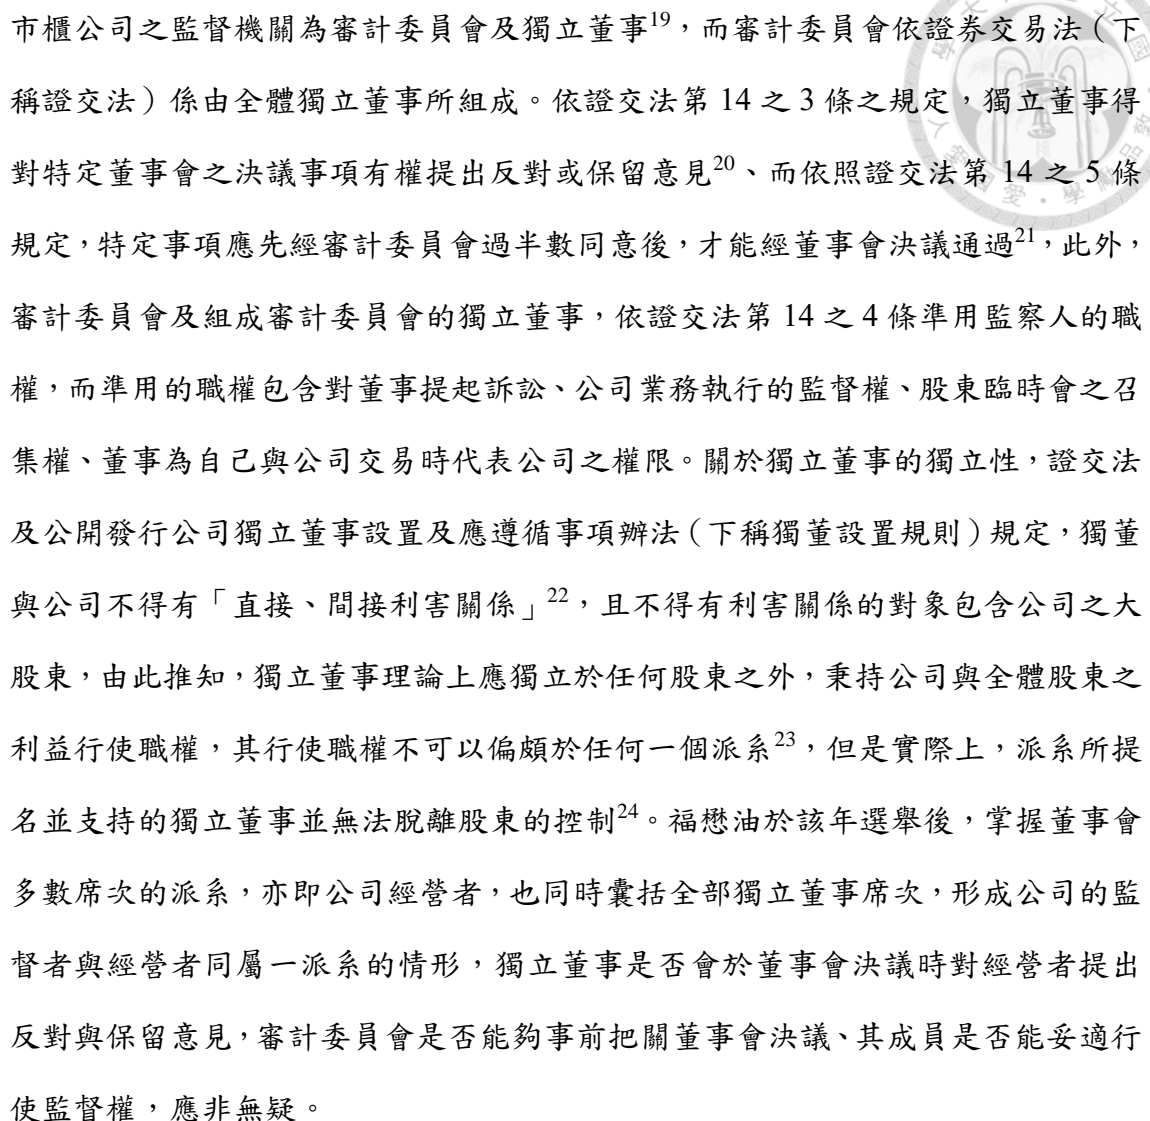 市櫃公司之監督機關為審計委員會及獨立董事19，而審計委員會依證券交易法（下
稱證交法）係由全體獨立董事所組成。依證交法第 14 之 3 條之規定，獨立董事得
對特定董事會之決議事項有權提出反對或保留意見20、而依照證交法第 14 之 5 條
規定，特定事項應先經審計委員會過半數同意後，才能經董事會決議通過21，此外，
審計委員會及組成審計委員會的獨立董事，依證交法第 14 之 4 條準用監察人的職
權，而準用的職權包含對董事提起訴訟、公司業務執行的監督權、股東臨時會之召
集權、董事為自己與公司交易時代表公司之權限。關於獨立董事的獨立性，證交法
及公開發行公司獨立董事設置及應遵循事項辦法（下稱獨董設置規則）規定，獨董
與公司不得有「直接、間接利害關係」22，且不得有利害關係的對象包含公司之大
股東，由此推知，獨立董事理論上應獨立於任何股東之外，秉持公司與全體股東之
利益行使職權，其行使職權不可以偏頗於任何一個派系23，但是實際上，派系所提
名並支持的獨立董事並無法脫離股東的控制24。福懋油於該年選舉後，掌握董事會
多數席次的派系，亦即公司經營者，也同時囊括全部獨立董事席次，形成公司的監
督者與經營者同屬一派系的情形，獨立董事是否會於董事會決議時對經營者提出
反對與保留意見，審計委員會是否能夠事前把關董事會決議、其成員是否能妥適行
使監督權，應非無疑。